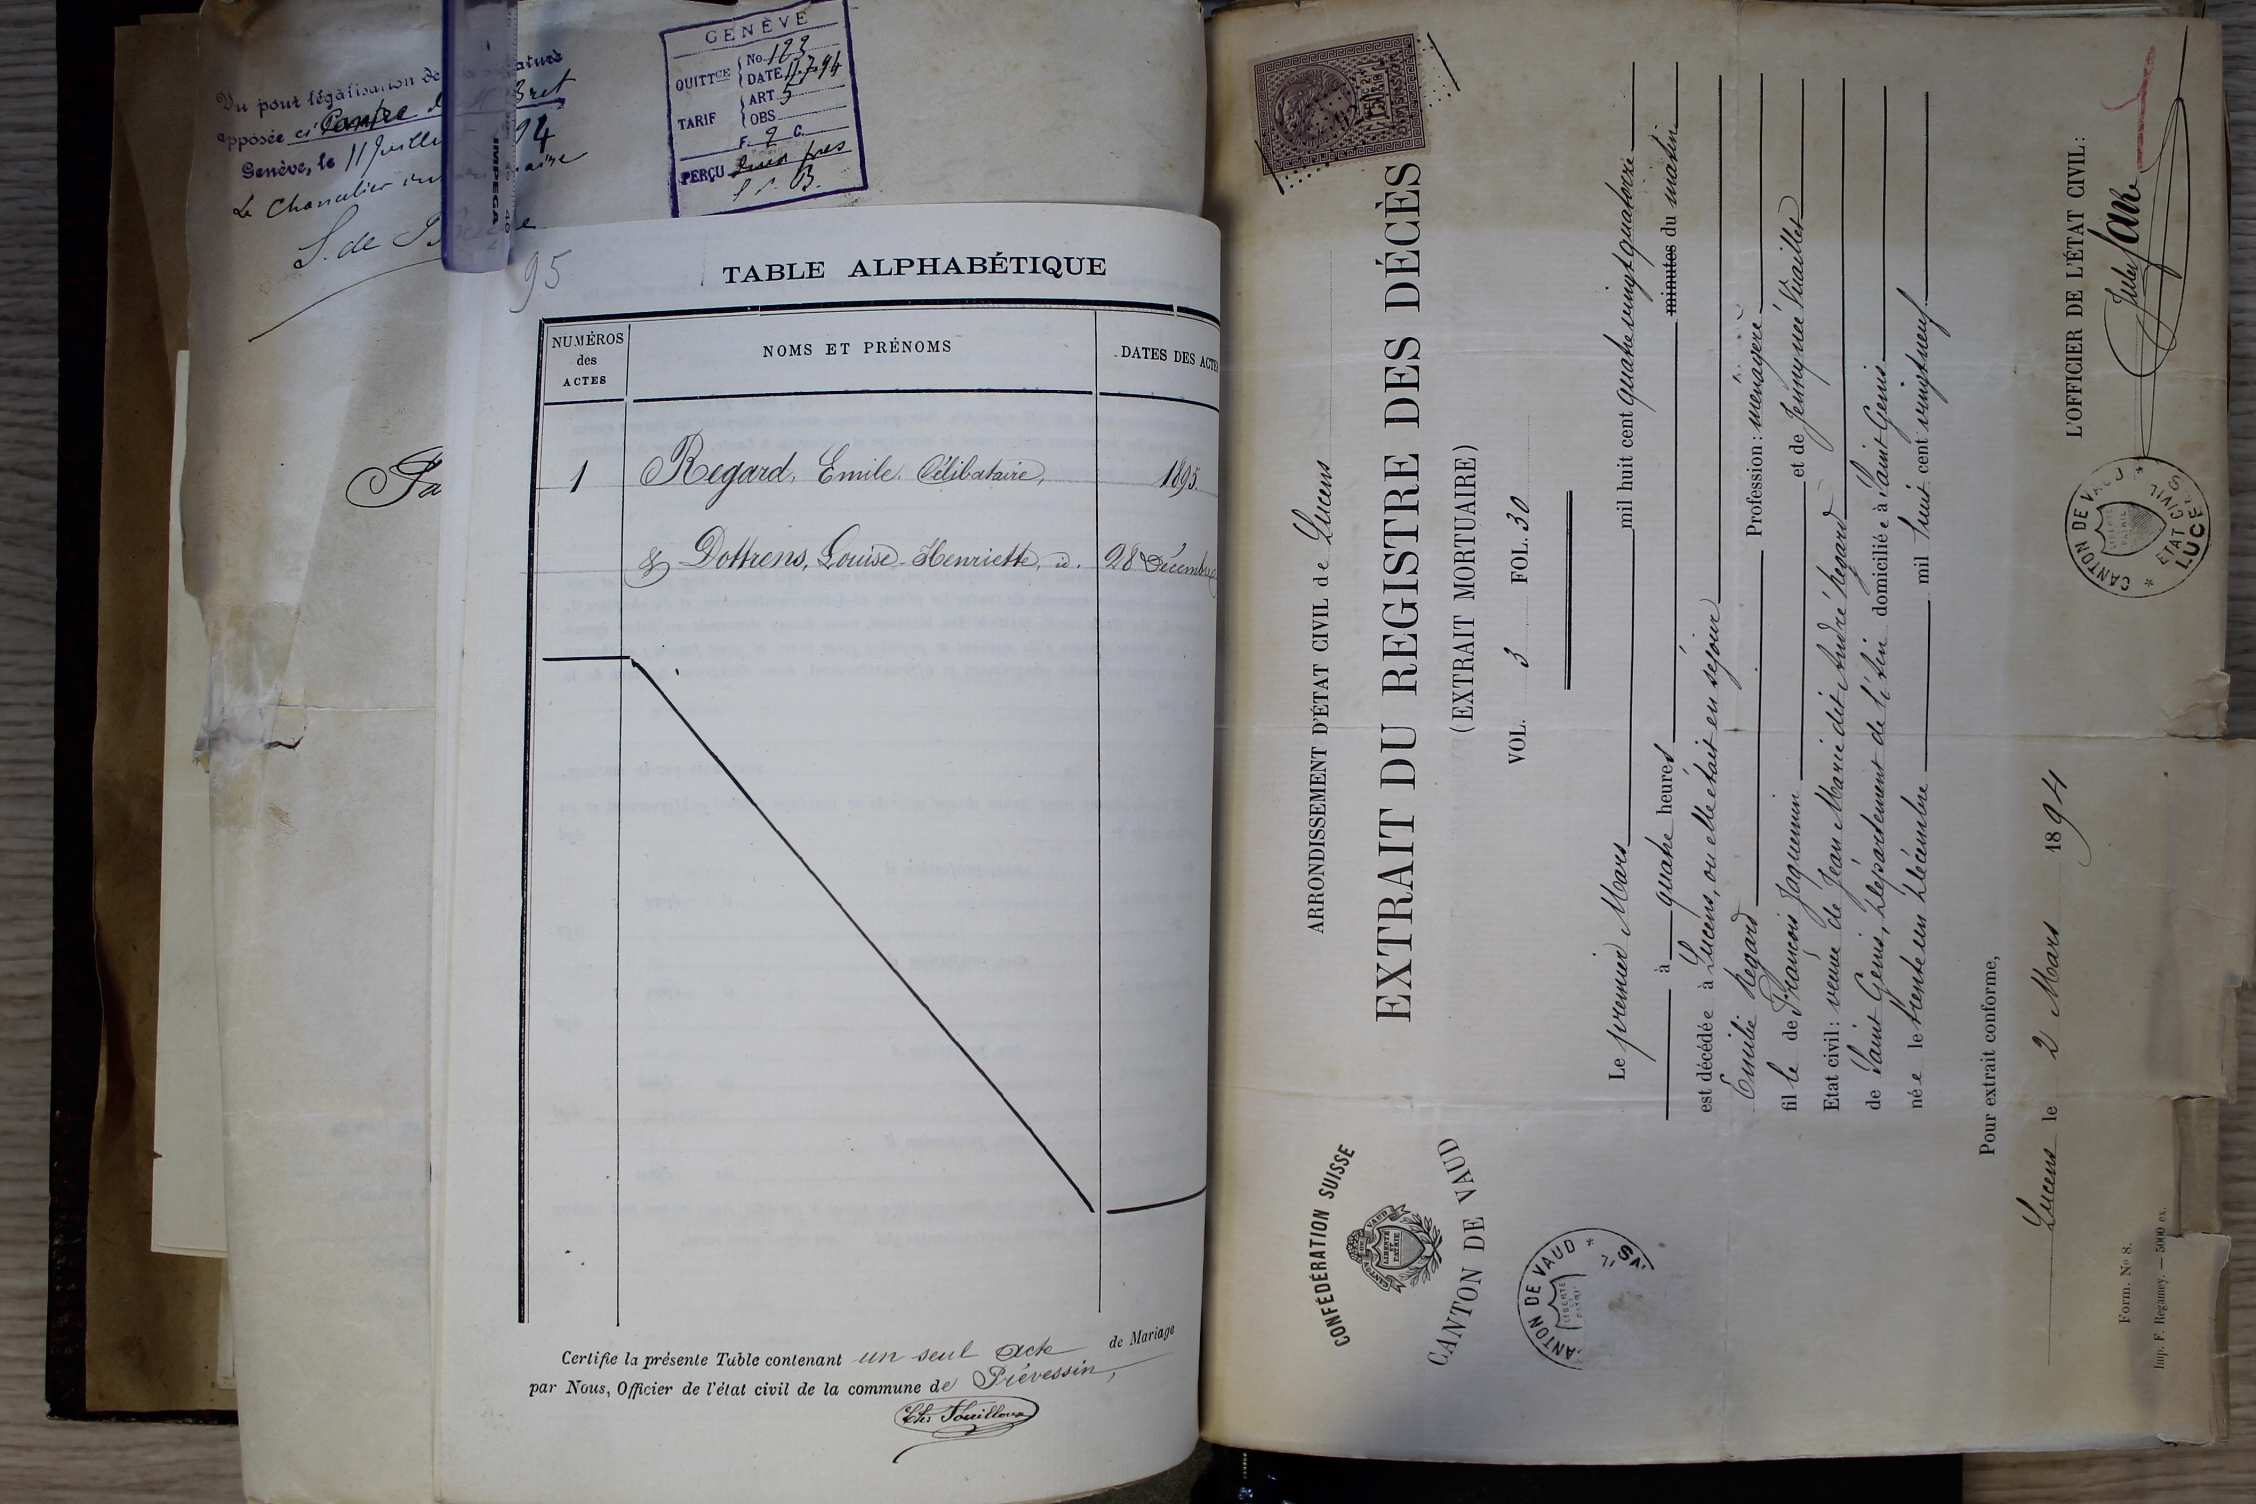 Vu pour légalisation de
apposée ci contre
Genève, le 11 Juille 94
Le Chancelier
S. de
GENÈVE
No. 123
QUITTCE DATE 11.7.94
ART 5
TARIF OBS
F. 2 C.
PERÇU deux frcs
95
TABLE ALPHABÉTIQUE
NUMÉROS des ACTES
NOMS ET PRÉNOMS
DATES DES ACTE
1 Regard, Emile, Célibataire, 1895.
& Dottrens, Louise-Henriette, id. 28 Décembre
Certifie la présente Table contenant un seul acte de Mariage
par Nous, Officier de l'état civil de la commune de Prévessin,
IMPEGA
CONFÉDÉRATION SUISSE
CANTON DE VAUD
LIBERTÉ ET PATRIE
CANTON DE VAUD
ARRONDISSEMENT D'ÉTAT CIVIL de Lucens
EXTRAIT DU REGISTRE DES DÉCÈS
(EXTRAIT MORTUAIRE)
VOL. 3 FOL. 30
Le premier Mars mil huit cent quatre vingt quatorze
à quatre heures minutes du matin
est décédée à Lucens, où elle était en séjour
Emilie Regard Profession: ménagère
fille de François Jaquemin et de Jenny née Viaillet
Etat civil: veuve de Jean Marie dit André Regard
de Saint Genis, Département de l'Ain domiciliée à Saint Genis
née le trente un Décembre mil huit cent vingt neuf
Pour extrait conforme,
Lucens le 2 Mars 1894
L'OFFICIER DE L'ÉTAT CIVIL:
CANTON DE VAUD
ETAT CIVIL
LUCENS
Form. No 8.
Imp. F. Regamey. — 5000 ex.